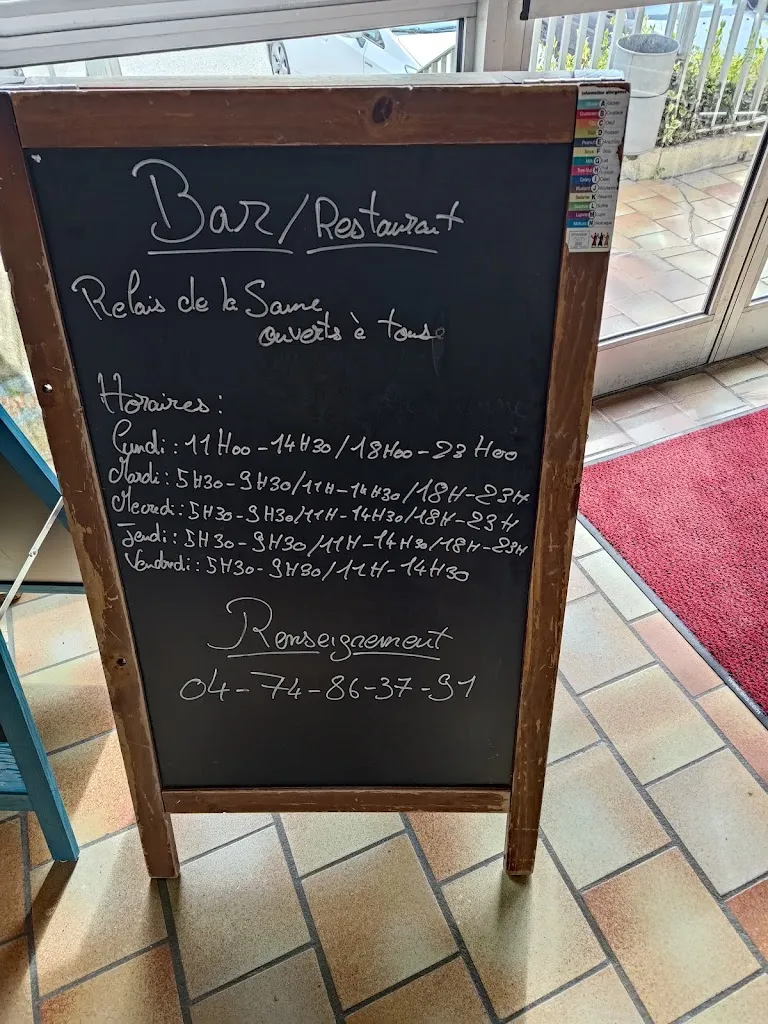 Bar/Restaurant
Relais de la Sanne
ouverts à tous
Horaires :
Lundi : 11H00 - 14H30 / 18H00 - 23H00
Mardi : 5H30 - 9H30 / 11H - 14H30 / 18H - 23H
Mecredi : 5H30 - 9H30 / 11H - 14H30 / 18H - 23H
Jeudi : 5H30 - 9H30 / 11H - 14H30 / 18H - 23H
Vendredi : 5H30 - 9H30 / 11H - 14H30
Renseignement
04-74-86-37-91